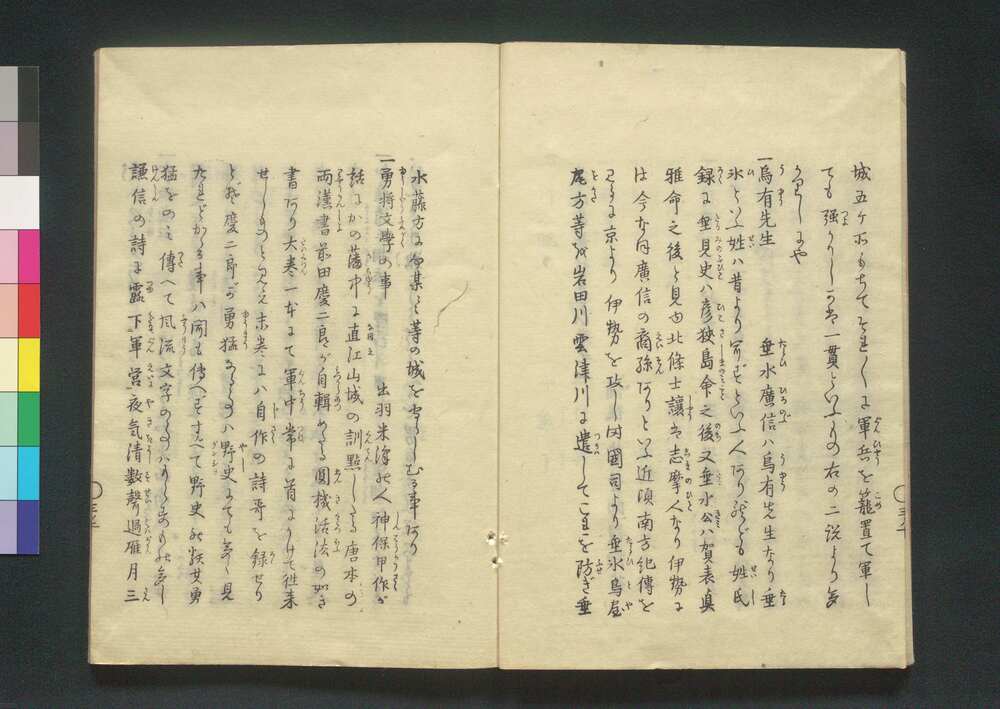 城五ヶ所もちてそれ〳〵に軍兵を籠置て軍し
ても強かりしかば一貫といふもの右の二説より多
かりしにや
一烏有先生　垂水廣信ハ烏有先生なり垂
水といふ姓ハ昔より家々といふ人あり然ども姓氏
録に垂見史ハ彦狭島命之後又垂水公ハ賀表真
雅命之後と見ゆ北條士讓は志摩人なり伊勢に
は今なほ廣信の裔孫ありといふ近頃南方紀傳を
見るに京より伊勢を攻し時國司より垂水鳥屋
尾方等を岩田川雲津川に遣してこれを防ぎ垂
水藤方に何某々等の城を
一勇将文學の事　出羽米澤の人神保甲作が
話にかの藩中に直江山城の訓點したる唐本の
両漢書前田慶二郎が自輯めたる圓機活法の如き
書あり大巻一本にて軍中常に首にかけて往来
せしものと見え末巻にハ自作の詩哥を録せり
とぞ慶二郎が勇猛なるものハ野史にても多く見
たれどかゝる事ハ聞も傳へずすべて野史の類其勇
猛をのミ傳へて風流文字のものハ
謙信の詩に露下軍営夜気清数聲過雁月三